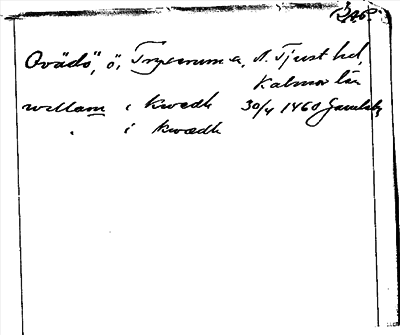 Ovädö, ö, Tryserums sn, N. Tjust hd,
Kalmar län
wellam i Kwedh 30/4 1460
i kwædh